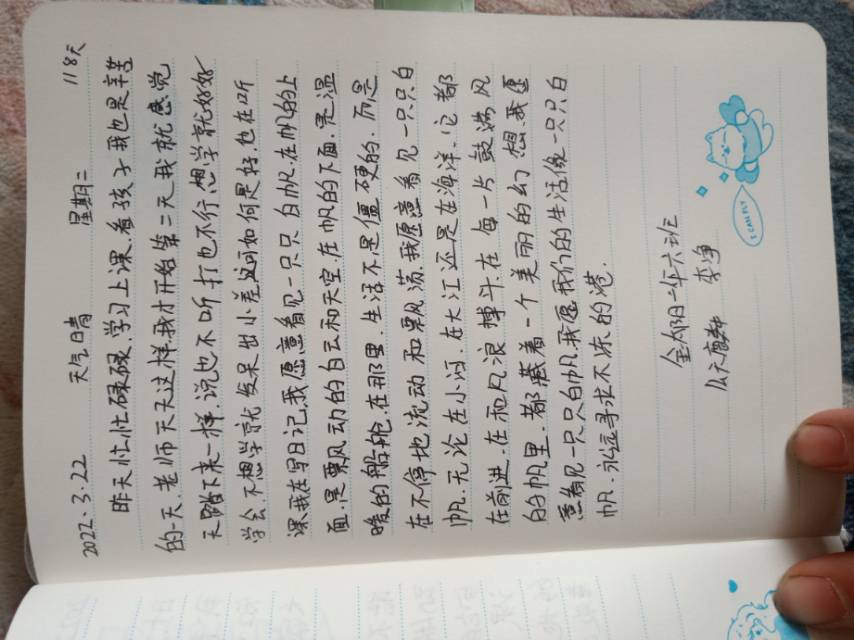 2022.3.22 天气晴 星期二 118天
昨天忙忙碌碌.学习上课.看孩子.我也是辛苦
的一天.老师天天这样.我才开始第二天.我就感觉
天踏下来一样.说也不听打也不行.想学就好好
学会.不想学就发呆出小差这可如何是好.也在听
课.我在写日记.我愿意看见一只只白帆.在帆的上
面.是飘动的白云和天空.在帆的下面.是温
暖的船舱.在那里.生活不是僵硬的.而是
在不停地流动和飘荡.我愿意看见一只只白
帆.无论在小河.在大江还是在海洋.它都
在前进.在和风浪搏斗.在每一片鼓满风
的帆里.都藏着一个美丽的幻想.我愿
意看见一只只白帆.我愿我们的生活像一只只白
帆.永远寻求不冻的港.
一年六班
李净
I CAN FLY